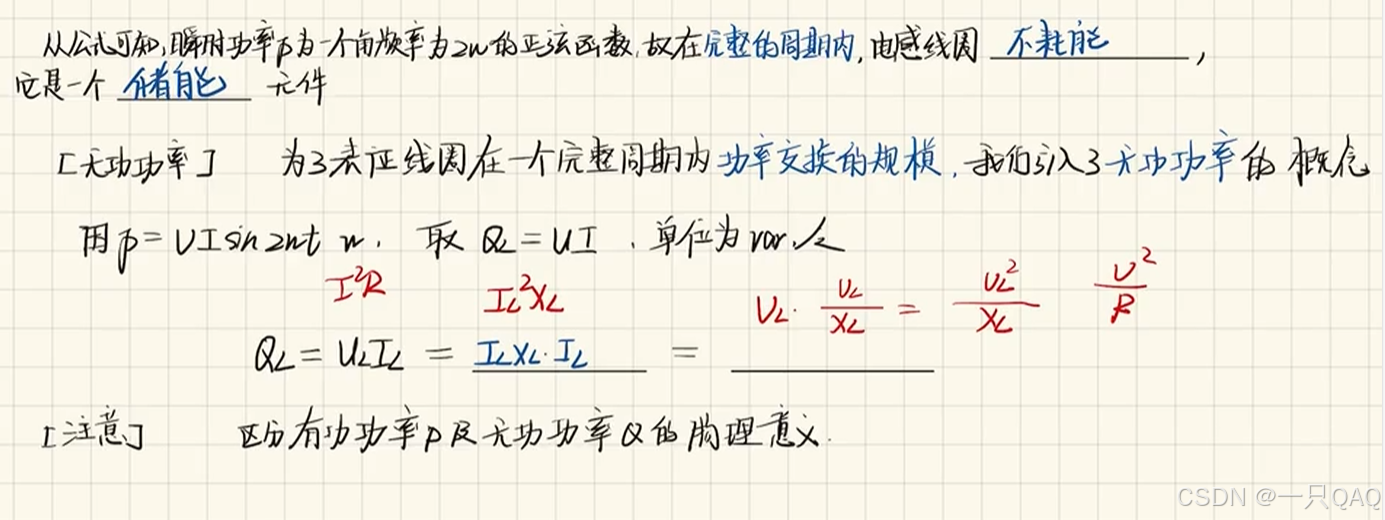 从公式可知,瞬时功率p为一个角频率为2w的正弦函数,故在完整的周期内,电感线圈 不耗能,
它是一个 储能 元件
[无功功率] 为了表征线圈在一个完整周期内功率交换的规模,我们引入了无功功率的概念
用p=UIsin2wt w, 取QL=UI,单位为var,
I²R IL²XL UL·UL/XL=UL²/XL U²/R
QL=ULIL=ILXL·IL=
[注意] 区分有功功率p及无功功率Q的物理意义.
CSDN @一只QAQ